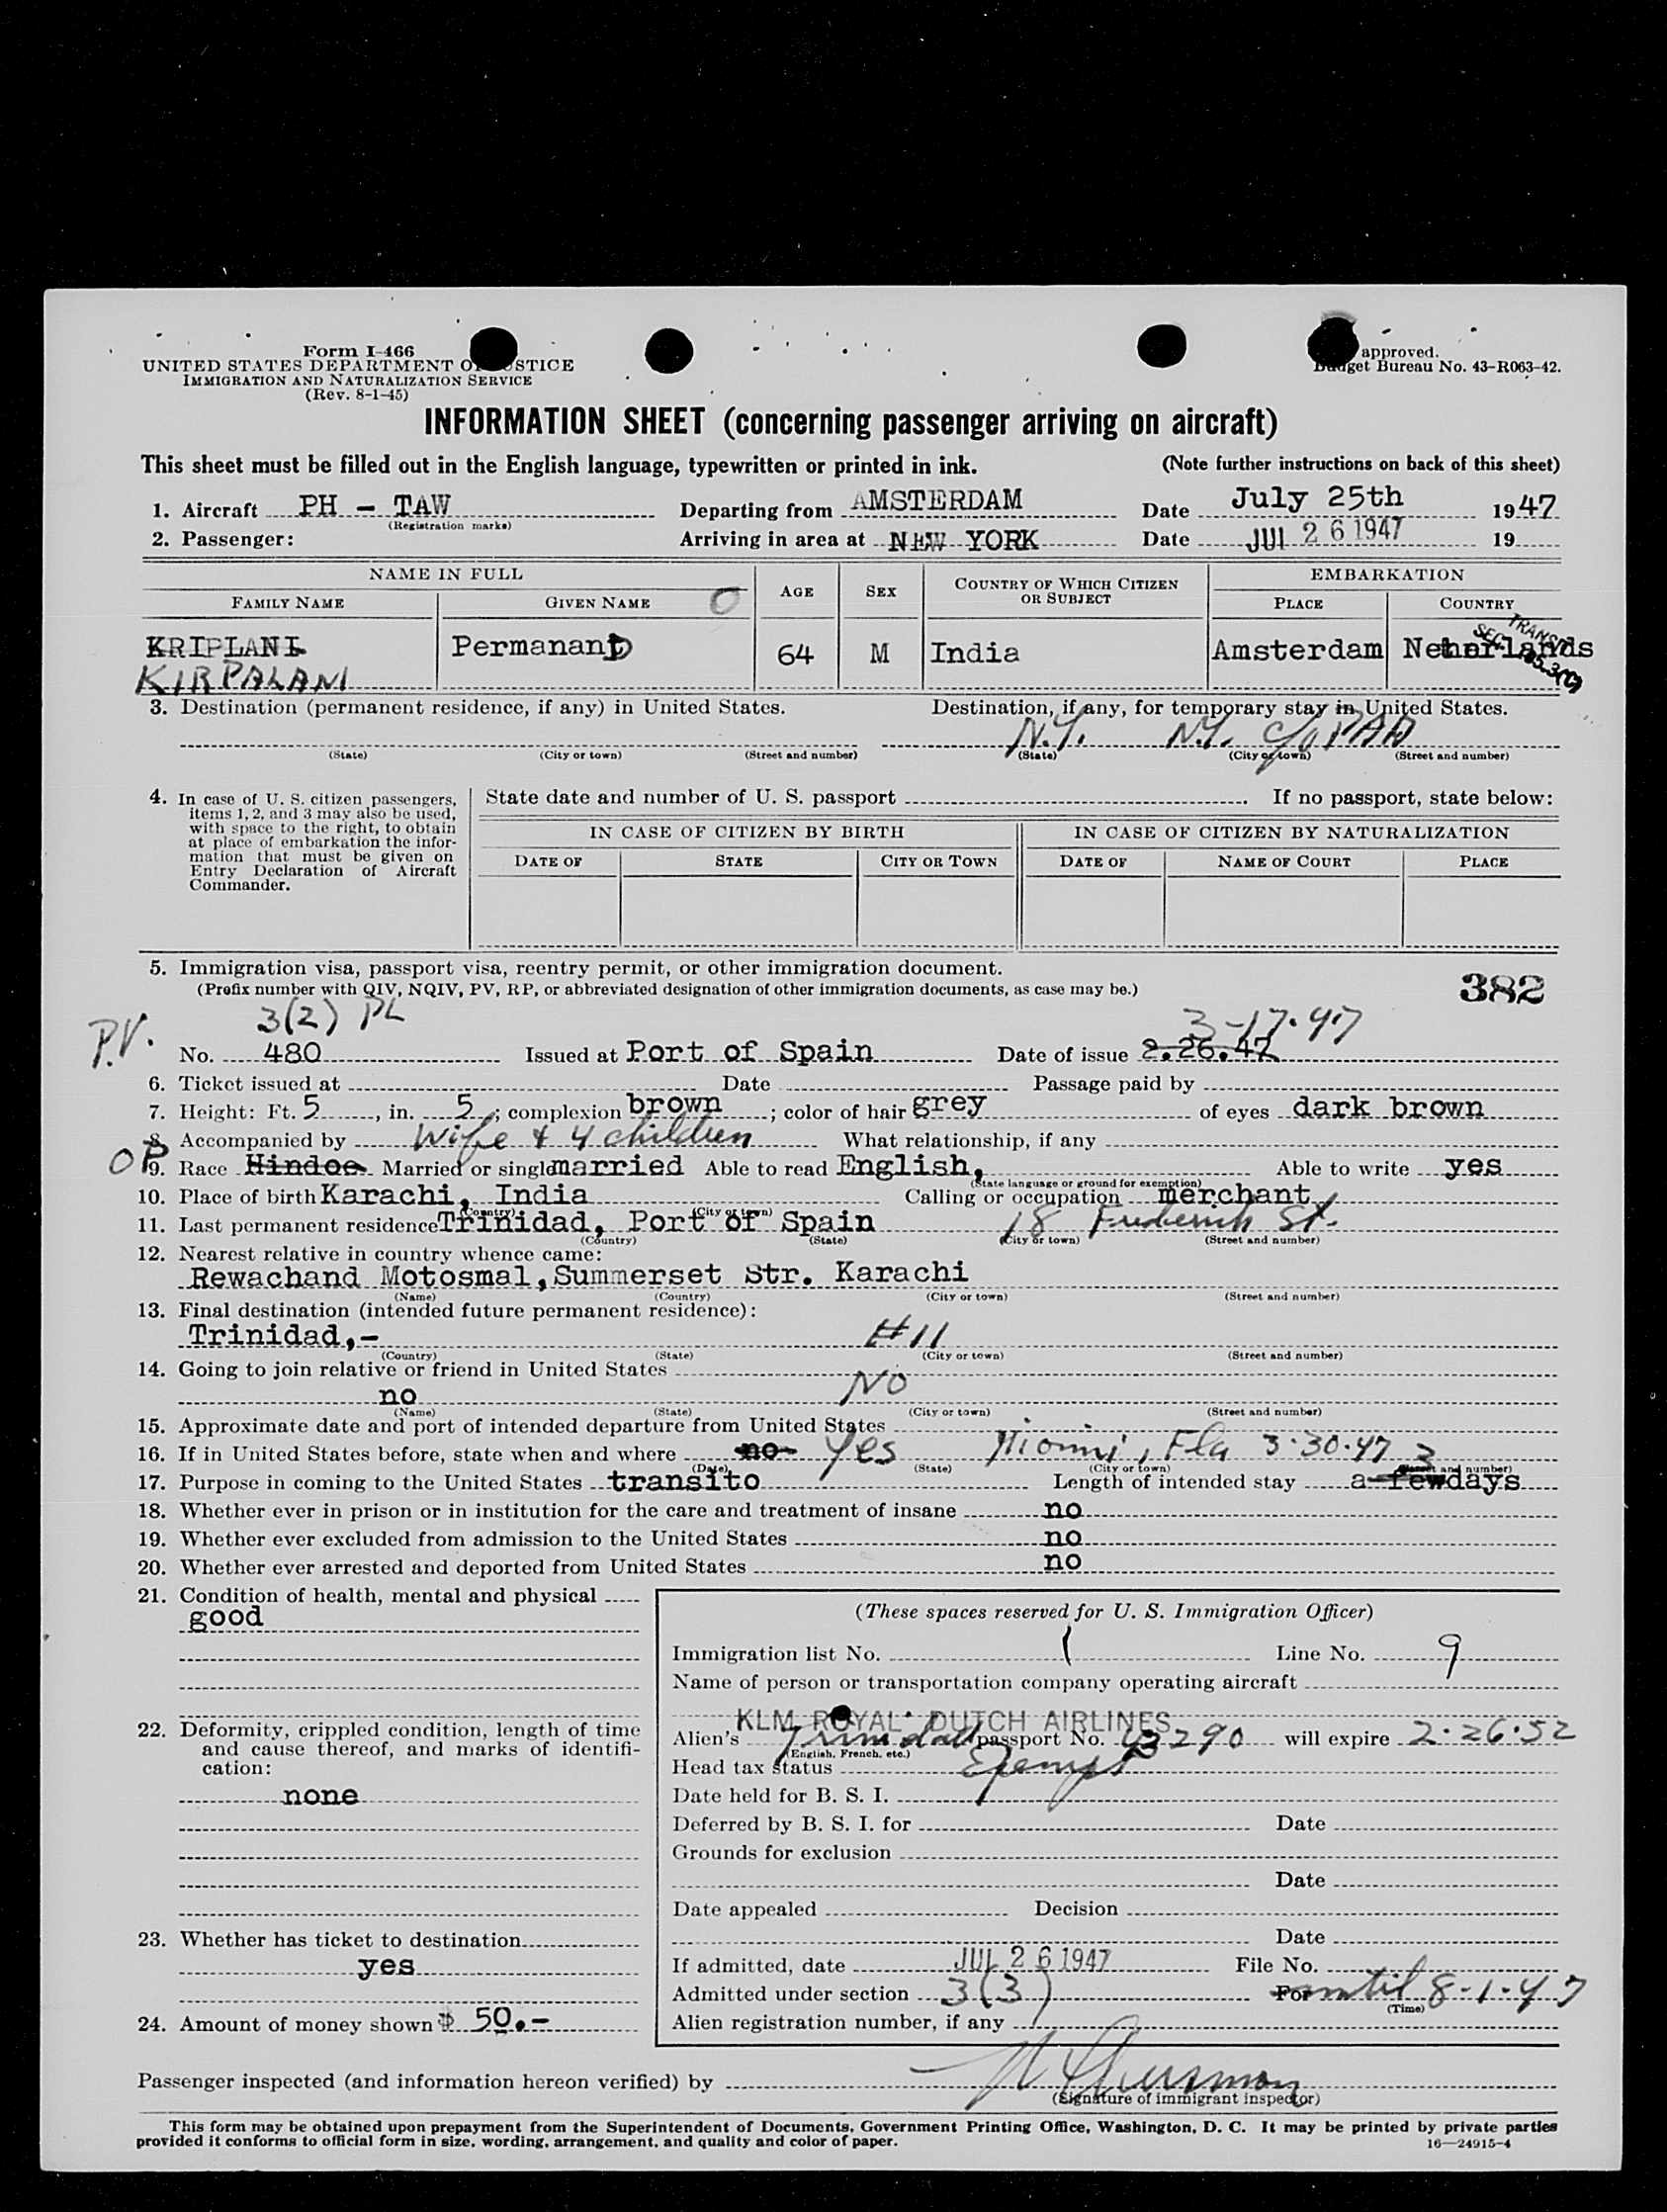 Form I-466
UNITED STATES DEPARTMENT OF JUSTICE
IMMIGRATION AND NATURALIZATION SERVICE
(Rev. 8-1-45)
approved.
Budget Bureau No. 43-R063-42.
INFORMATION SHEET (concerning passenger arriving on aircraft)
This sheet must be filled out in the English language, typewritten or printed in ink. (Note further instructions on back of this sheet)
1. Aircraft PH - TAW Departing from AMSTERDAM Date July 25th 1947
(Registration marks)
2. Passenger: Arriving in area at NEW YORK Date JUL 26 1947 19
NAME IN FULL AGE SEX COUNTRY OF WHICH CITIZEN OR SUBJECT EMBARKATION
FAMILY NAME GIVEN NAME PLACE COUNTRY
KRIPLANI Permanand 64 M India Amsterdam Netherlands
KIRPALANI
TRANSIT
SEC. 3(3)
3. Destination (permanent residence, if any) in United States. Destination, if any, for temporary stay in United States.
N.Y. N.Y. c/o PAA
(State) (City or town) (Street and number) (State) (City or town) (Street and number)
4. In case of U. S. citizen passengers, items 1, 2, and 3 may also be used, with space to the right, to obtain at place of embarkation the information that must be given on Entry Declaration of Aircraft Commander.
State date and number of U. S. passport If no passport, state below:
IN CASE OF CITIZEN BY BIRTH IN CASE OF CITIZEN BY NATURALIZATION
DATE OF STATE CITY OR TOWN DATE OF NAME OF COURT PLACE
5. Immigration visa, passport visa, reentry permit, or other immigration document.
(Prefix number with QIV, NQIV, PV, RP, or abbreviated designation of other immigration documents, as case may be.)
382
3(2) PL 3-17-47
P.V. No. 480 Issued at Port of Spain Date of issue 2.26.47
6. Ticket issued at Date Passage paid by
7. Height: Ft. 5, in. 5; complexion brown; color of hair grey of eyes dark brown
8. Accompanied by Wife & 4 children What relationship, if any
9. Race Hindoe Married or single married Able to read English, Able to write yes
(State language or ground for exemption)
10. Place of birth Karachi, India Calling or occupation merchant
(Country) (City or town)
11. Last permanent residence Trinidad, Port of Spain 18 Frederick St.
(Country) (State) (City or town) (Street and number)
12. Nearest relative in country whence came:
Rewachand Motosmal, Summerset Str. Karachi
(Name) (Country) (City or town) (Street and number)
13. Final destination (intended future permanent residence):
Trinidad,- #11
(Country) (State) (City or town) (Street and number)
14. Going to join relative or friend in United States
no NO
(Name) (State) (City or town) (Street and number)
15. Approximate date and port of intended departure from United States
16. If in United States before, state when and where no yes Miami, Fla 3-30-47
(Date) (State) (City or town) (Street and number)
17. Purpose in coming to the United States transito Length of intended stay a few 3 days
18. Whether ever in prison or in institution for the care and treatment of insane no
19. Whether ever excluded from admission to the United States no
20. Whether ever arrested and deported from United States no
21. Condition of health, mental and physical
good
22. Deformity, crippled condition, length of time and cause thereof, and marks of identification:
none
23. Whether has ticket to destination
yes
24. Amount of money shown $ 50.-
(These spaces reserved for U. S. Immigration Officer)
Immigration list No. 1 Line No. 9
Name of person or transportation company operating aircraft
KLM ROYAL DUTCH AIRLINES
Alien's Trinidad passport No. 43290 will expire 2-26-52
(English, French, etc.)
Head tax status Exempt
Date held for B. S. I.
Deferred by B. S. I. for Date
Grounds for exclusion
Date
Date appealed Decision
Date
If admitted, date JUL 26 1947 File No.
Admitted under section 3(3) For until 8-1-47
(Time)
Alien registration number, if any
Passenger inspected (and information hereon verified) by
(Signature of immigrant inspector)
This form may be obtained upon prepayment from the Superintendent of Documents, Government Printing Office, Washington, D. C. It may be printed by private parties
provided it conforms to official form in size, wording, arrangement, and quality and color of paper.
16—24915-4